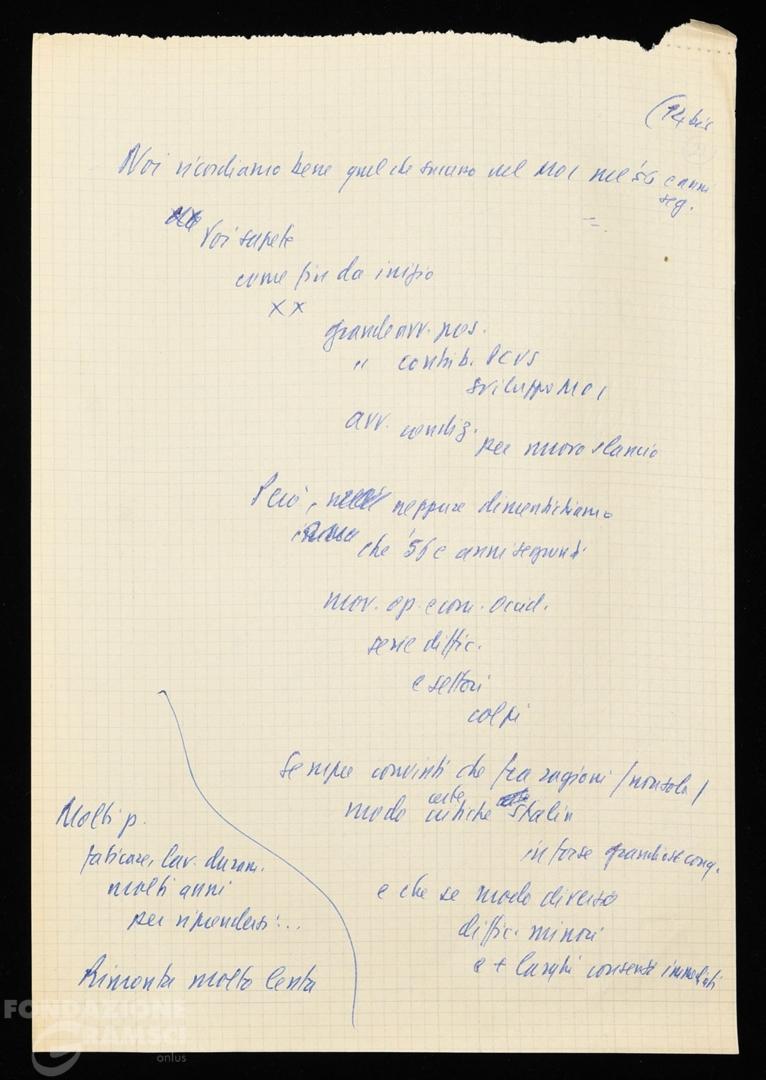 (14 bis
Noi ricordiamo bene quel che successo nel MOI nel '56 e anni
seg.
Voi sapete
come fin da inizio
x x
grande avv. pos.
" contrib. PCUS
sviluppo MOI
avv. condiz.
per nuovo slancio
Però, neppure dimentichiamo
che '56 e anni seguenti
mov. op. e com. occid.
serie diffic.
e settori
colpi
Sempre convinti che fra ragioni /non sola/
modo certe critiche Stalin
in forse grandiose conq.
e che se modo diverso
diffic. minori
e + larghi consensi immediati
Molti p.
faticare, lav. duram.
molti anni
per riprendersi...
Rimonta molto lenta
FONDAZIONE
GRAMSCI
onlus